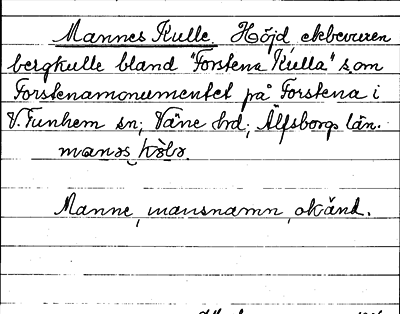 Mannes Kulle. Höjd ekbevuxen
bergkulle bland "Forstena Kulla" som
Forstenamonumentet på Forstena i
V. Tunhem sn; Väne hd; Älfsborgs län.
manəs kɵlə.
Manne, mansnamn, okänd.